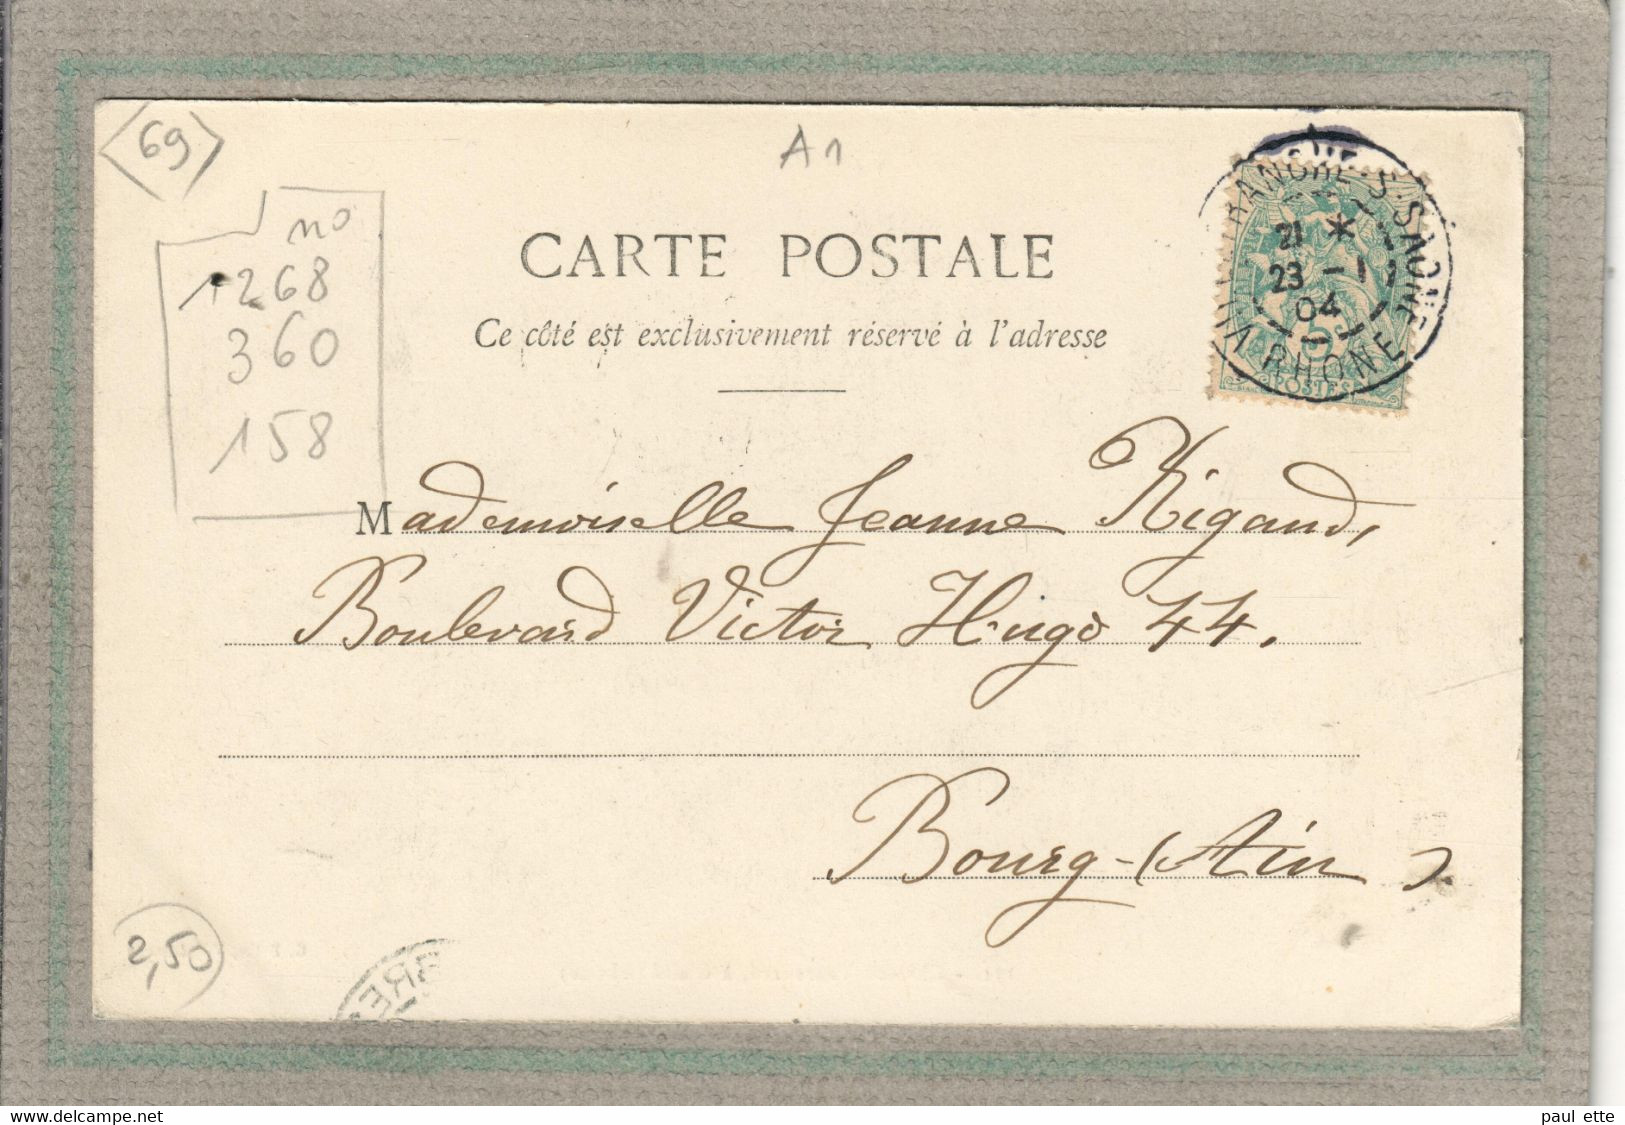 69
A1
no
1268
360
158
CARTE POSTALE
Ce côté est exclusivement réservé à l'adresse
VILLEFRANCHE-S-SAONE
21 *
23 -12
04
RHONE
5
POSTES
Mademoiselle Jeanne Rigaud,
Boulevard Victor Hugo 44.
Bourg-(Ain)
2,50
paul ette